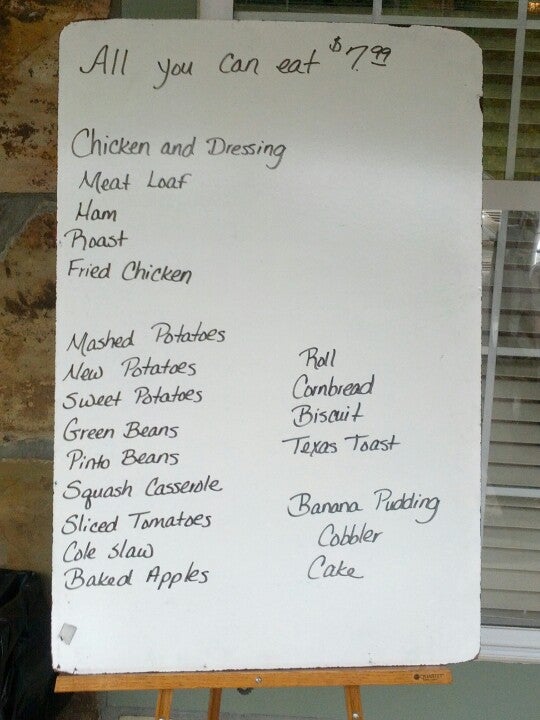 All you can eat $7.99
Chicken and Dressing
Meat Loaf
Ham
Roast
Fried Chicken
Mashed Potatoes
New Potatoes
Sweet Potatoes
Green Beans
Pinto Beans
Squash Casserole
Sliced Tomatoes
Cole Slaw
Baked Apples
Roll
Cornbread
Biscuit
Texas Toast
Banana Pudding
Cobbler
Cake